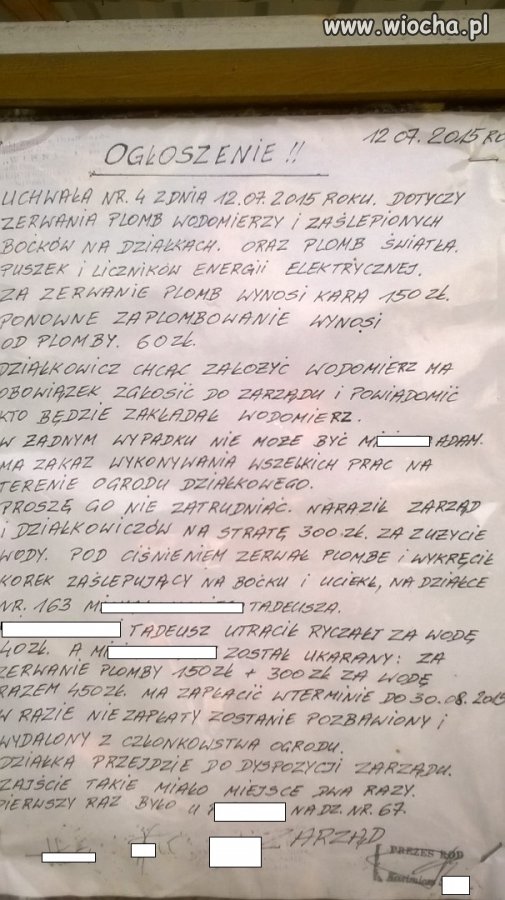 www.wiocha.pl
12.07.2015 RO
OGŁOSZENIE !!
UCHWAŁA NR. 4 Z DNIA 12.07.2015 ROKU. DOTYCZY
ZERWANIA PLOMB WODOMIERZY I ZAŚLEPIONYCH
BOĆKÓW NA DZIAŁKACH. ORAZ PLOMB ŚWIATŁA.
PUSZEK I LICZNIKÓW ENERGII ELEKTRYCZNEJ.
ZA ZERWANIE PLOMB WYNOSI KARA 150 ZŁ.
PONOWNE ZAPLOMBOWANIE WYNOSI
OD PLOMBY. 60 ZŁ.
DZIAŁKOWICZ CHCĄC ZAŁOŻYĆ WODOMIERZ MA
OBOWIĄZEK ZGŁOSIĆ DO ZARZĄDU I POWIADOMIĆ
KTO BĘDZIE ZAKŁADAŁ WODOMIERZ.
W ŻADNYM WYPADKU NIE MOŻE BYĆ M ADAM.
MA ZAKAZ WYKONYWANIA WSZELKICH PRAC NA
TERENIE OGRODU DZIAŁKOWEGO.
PROSZĘ GO NIE ZATRUDNIAĆ. NARAZIŁ ZARZĄD
I DZIAŁKOWICZÓW NA STRATĘ 300 ZŁ. ZA ZUŻYCIE
WODY. POD CIŚNIENIEM ZERWAŁ PLOMBE I WYKRĘCIŁ
KOREK ZAŚLEPUJĄCY NA BOĆKU I UCIEKŁ, NA DZIAŁCE
NR. 163 M TADEUSZA.
TADEUSZ UTRACIŁ RYCZAŁT ZA WODĘ
40 ZŁ. A M ZOSTAŁ UKARANY: ZA
ZERWANIE PLOMBY 150 ZŁ + 300 ZŁ ZA WODĘ
RAZEM 450 ZŁ. MA ZAPŁACIĆ WTERMINIE DO 30.08.2015
W RAZIE NIEZAPŁATY ZOSTANIE POZBAWIONY I
WYDALONY Z CZŁONKOWSTWA OGRODU.
DZIAŁKA PRZEJDZIE DO DYSPOZYCJI ZARZĄDU.
ZAJŚCIE TAKIE MIAŁO MIEJSCE DWA RAZY.
PIERWSZY RAZ BYŁO U NA DZ. NR. 67.
ZARZĄD
PREZES ROD
Kazimierz